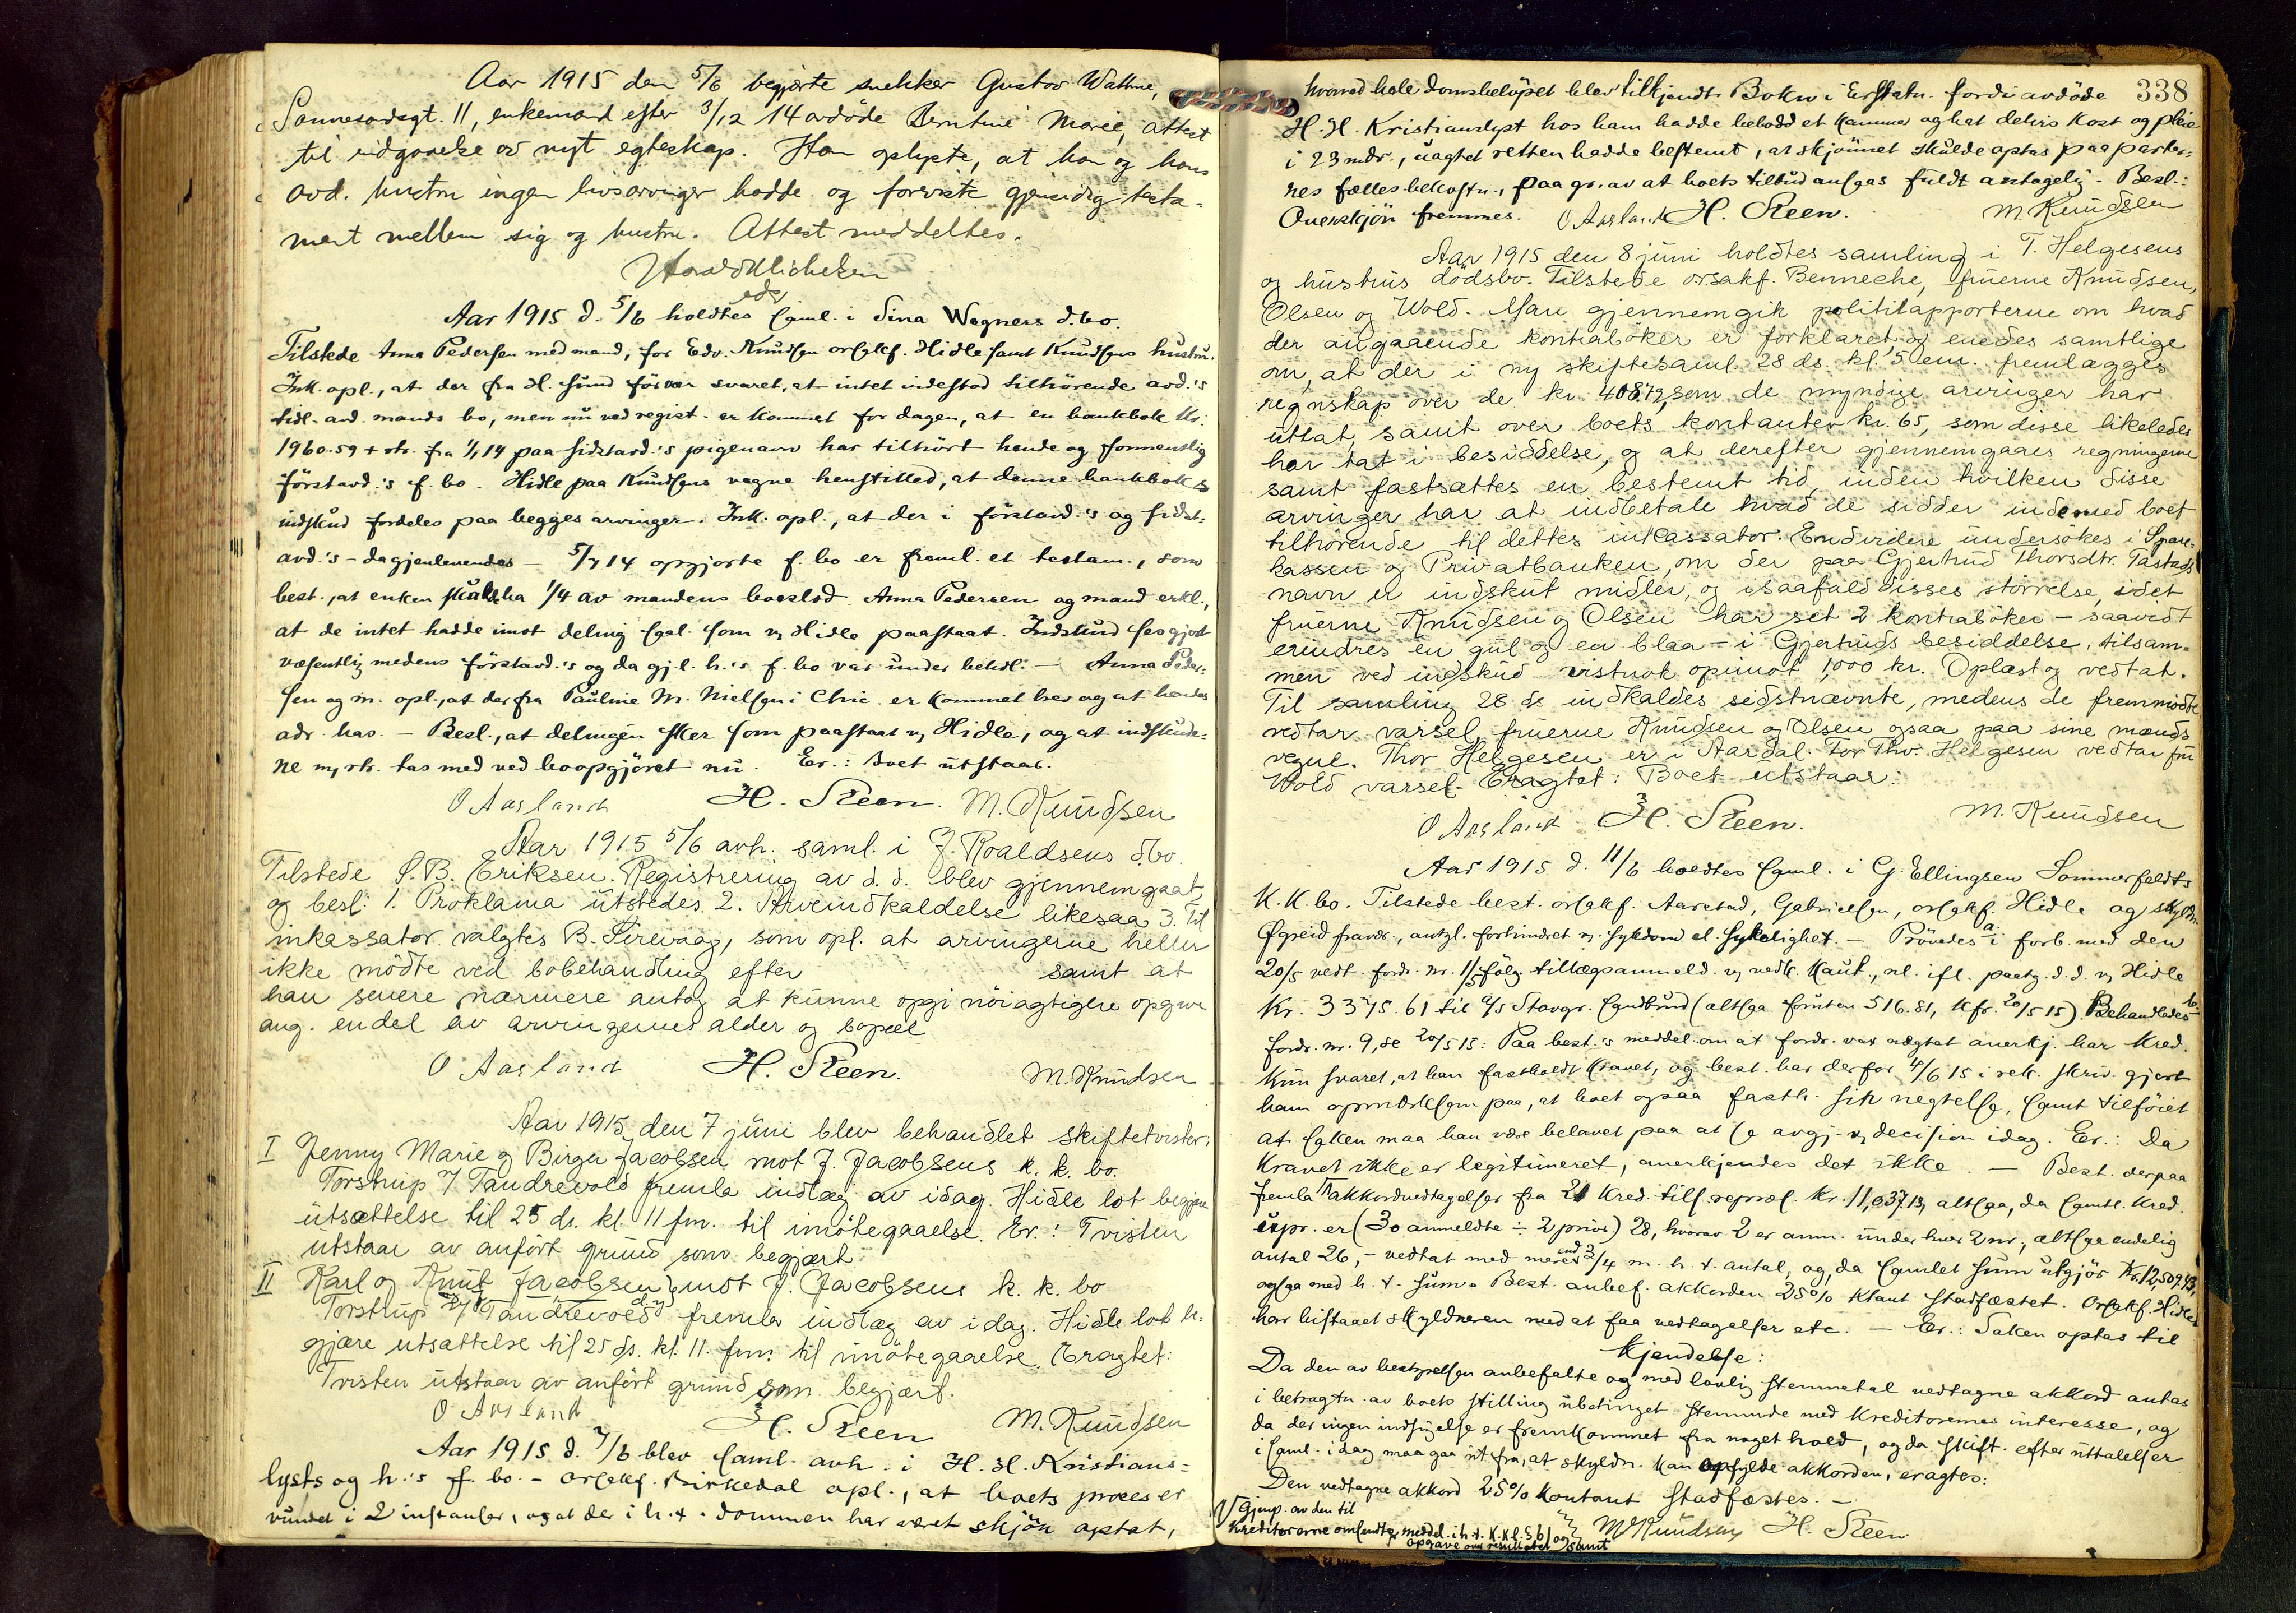 Aar 1915 den 5/6 begjærte snekker Gustav Wathne,
Sonnesadsgt. 11, enkemand efter 3/12 14 avdöde Berntine Marie, attest
til indgaaelse av nyt egteskap. Han oplyste, at han og hans
avd. hustru ingen livsarvinger hadde og foreviste gjensidig testa-
ment mellem sig og hustru. Attest meddeltes.
Aar 1915 d. 5/6 holdtes saml. i Sina Wagners d.bo.
Tilstede Anna Pedersen med mand, for Edv. Knudsen orsakf. Hidle samt Knudsens hustru.
Ink. opl., at der fra H. Sund för var svaret, at intet indestod tilhörende avd.'s
tidl. avd. mands bo, men nu ved regist. er kommet for dagen, at en bankbok kr.
1960.59 + rtr. fra 1/1 14 paa sidstavd.'s pigenavn har tilhört hende og formentlig
förstavd.'s f. bo. Hidle paa Knudsens vegne henstilled, at denne bankboks
indskud fordeles paa begges arvinger. Ink. opl., at der i förstavd.'s og sidst-
avd.'s - da gjenlevendes - 5/7 14 opgjorte f. bo er freml. et testam., som
best., at enken skulde ha 1/4 av mandens boeslod. Anna Pedersen og mand erkl.,
at de intet hadde imot deling saal. som v/ Hidle paastaat. Indskud sees gjort
væsentlig medens förstavd.'s og da gj.l. h.'s f. bo var under behdl. - Anna Peder-
sen og m. opl., at der fra Pauline M. Nielsen i Chic. er kommet brev og at hendes
adr. has. - Besl., at delingen sker som paastaat v/ Hidle, og at indskude-
ne m/ rtr. tas med ved boopgjöret nu. Er.: Boet utstaar.
O Aasland H. Steen. M. Knudsen
Aar 1915 5/6 avh. saml. i J. Roaldsens d.bo.
Tilstede S. B. Eriksen. Registrering av d. d. blev gjennemgaat
og besl: 1. Proklama utstedes. 2. Arveindkaldelse likesaa 3. Til
inkassator valgtes B. Sirevaag, som opl. at arvingerne heller
ikke mödte ved bobehandling efter samt at
han senere nærmere antog at kunne opgi nöiagtigere opgave
ang. endel av arvingernes alder og bopæl
O Aasland H. Steen. M. Knudsen
Aar 1915 den 7 juni blev behandlet skiftetvister:
I Jenny Marie og Birger Jacobsen mot J. Jacobsens k. k. bo.
Torstrup v/ Tandrevold fremla indlæg av idag. Hidle lot begjære
utsættelse til 25 ds. kl. 11 fm. til imötegaaelse. Er.: Tvisten
utstaar av anfört grund som begjært.
II Karl og Knut Jacobsen mot J. Jacobsens k. k. bo
Torstrup v/ Tandrevold fremla indlæg av idag. Hidle lot be-
gjære utsættelse til 25 ds. kl. 11. fm. til imötegaaelse. Eragtet:
Tvisten utstaar av anfört grund som begjært.
O Aasland H. Steen M. Knudsen
Aar 1915 d. 7/6 blev saml. avh. i H. H. Kristians-
lysts og h.'s f. bo. - Orsakf. Birkedal opl., at boets proces er
vundet i 2 instanser, og at der i h. t. dommen har været skjön optat,
338
hvorved hele domsbelöpet blev tilkjendt Bokn i Erstatn. fordi avdöde
H. H. Kristianslyst hos ham hadde bebodd et kammer og hat delvis kost og pleie
i 23 mdr., uagtet retten hadde bestemt, at skjönnet skulde optas paa parter-
nes fælles bekostn., paa gr. av at boets tilbud ansaas fuldt antagelig. Besl.:
Overskjön fremmes. O Aasland H. Steen. M. Knudsen
Aar 1915 den 8 juni holdtes samling i T. Helgesens
og hustrus dödsbo. Tilstede orsakf. Benneche, fruerne Knudsen,
Olsen og Wold. Man gjennemgik politirapporterne om hvad
der angaaende kontraböker er forklaret og enedes samtlige
om, at der i ny skiftesaml. 28 ds. kl. 5 em. fremlægges
regnskap over de kr. 408.72, som de myndige arvinger har
uttat, samt over boets kontanter kr. 65, som disse likeledes
har tat i besiddelse, og at derefter gjennemgaaes regningerne
samt fastsattes en bestemt tid, inden hvilken disse
arvinger har at indbetale hvad de sidder inde med boet
tilhörende til dettes inkassator. Endvidere undersökes i Spare-
kassen og Privatbanken, om der paa Gjertrud Thorsdtr. Tastads
navn er indskut midler, og isaafald disses störrelse, idet
fruerne Knudsen og Olsen har set 2 kontraböker - saavidt
erindres en gul og en blaa - i Gjertruds besiddelse, tilsam-
men ved indskud vistnok opimot 1,000 kr. Oplæst og vedtat.
Til samling 28 ds indkaldes sidstnævnte, medens de fremmödte
vedtar varsel, fruerne Knudsen og Olsen ogsaa paa sine mænds
vegne. Thor Helgesen er i Aardal. For Thv. Helgesen vedtar fru
Wold varsel. Eragtet: Boet utstaar.
O Aasland H. Steen. M. Knudsen
Aar 1915 d. 11/6 holdtes saml. i G. Ellingsen Sommerfeldts
K.K. bo. Tilstede best. orsakf. Aarstad, Gabrielsen, orsakf. Hidle og skyldn.
Øgreid fravær., antgl. forhindret v. sykdom el. sykelighet. - Prövedes a. i forb. med den
20/5 vedt. fordr. nr. 1/3 fölg. tillægsanmeld. v/ vedk. kaut., nl. ifl. paateg. d. d. v/ Hidle
Kr. 3375.61 til a/s Stavgr. Sandkund (altsaa foruten 516.81, kfr. 20/5 15). Behandledes b.
fordr. nr. 9, se 20/5 15: Paa best.'s meddel. om at fordr. var nægtet anerkj. har kred.
kun svaret, at han fastholdt kravet, og best. har derfor 4/6 15 i rek. skriv. gjort
ham opmerksom paa, at boet ogsaa fasth. sin negtelse, samt tilföiet
at saken maa han være belavet paa at se avgj. v/ decision idag. Er.: Da
kravet ikke er legitimeret, anerkjendes det ikke. - Best. derpaa
fremla akkordvedtagelser fra 21 kred. tils. repræs. kr. 11,037.13, altsaa, da samtl. kred.
upr. er (30 anmeldte ÷ 2 prior.) 28, hvorav 2 er anm. under hver 2 nr., altsaa endelig
antal 26, - vedtat med mere end 3/4 m. h. t. antal, og, da samlet sum utgjör kr. 12,509.43,
ogsaa med h. t. sum. Best. anbef. akkorden 25% ktant stadfæstet. Orsakf. Hidle
har bistaaet skyldneren med at faa vedtagelser etc. - Er.: Saken optas til
kjendelse:
Da den av bestyrelsen anbefalte og med lovlig stemmetal vedtagne akkord antas
i betragtn. av boets stilling ubetinget stemmende med kreditorernes interesse, og
da der ingen indsigelse er fremkommet fra noget hold, og da skift. efter uttalelser
i saml. idag maa gaa ut fra, at skyldn. kan opfylde akkorden, eragtes:
Den vedtagne akkord 25% kontant stadfæstes. -
Gjenp. av den til
kreditorerne omsendte meddel. i h. t. K.Kl. § 61 og M Knudsen H. Steen.
opgave over resultatet samt